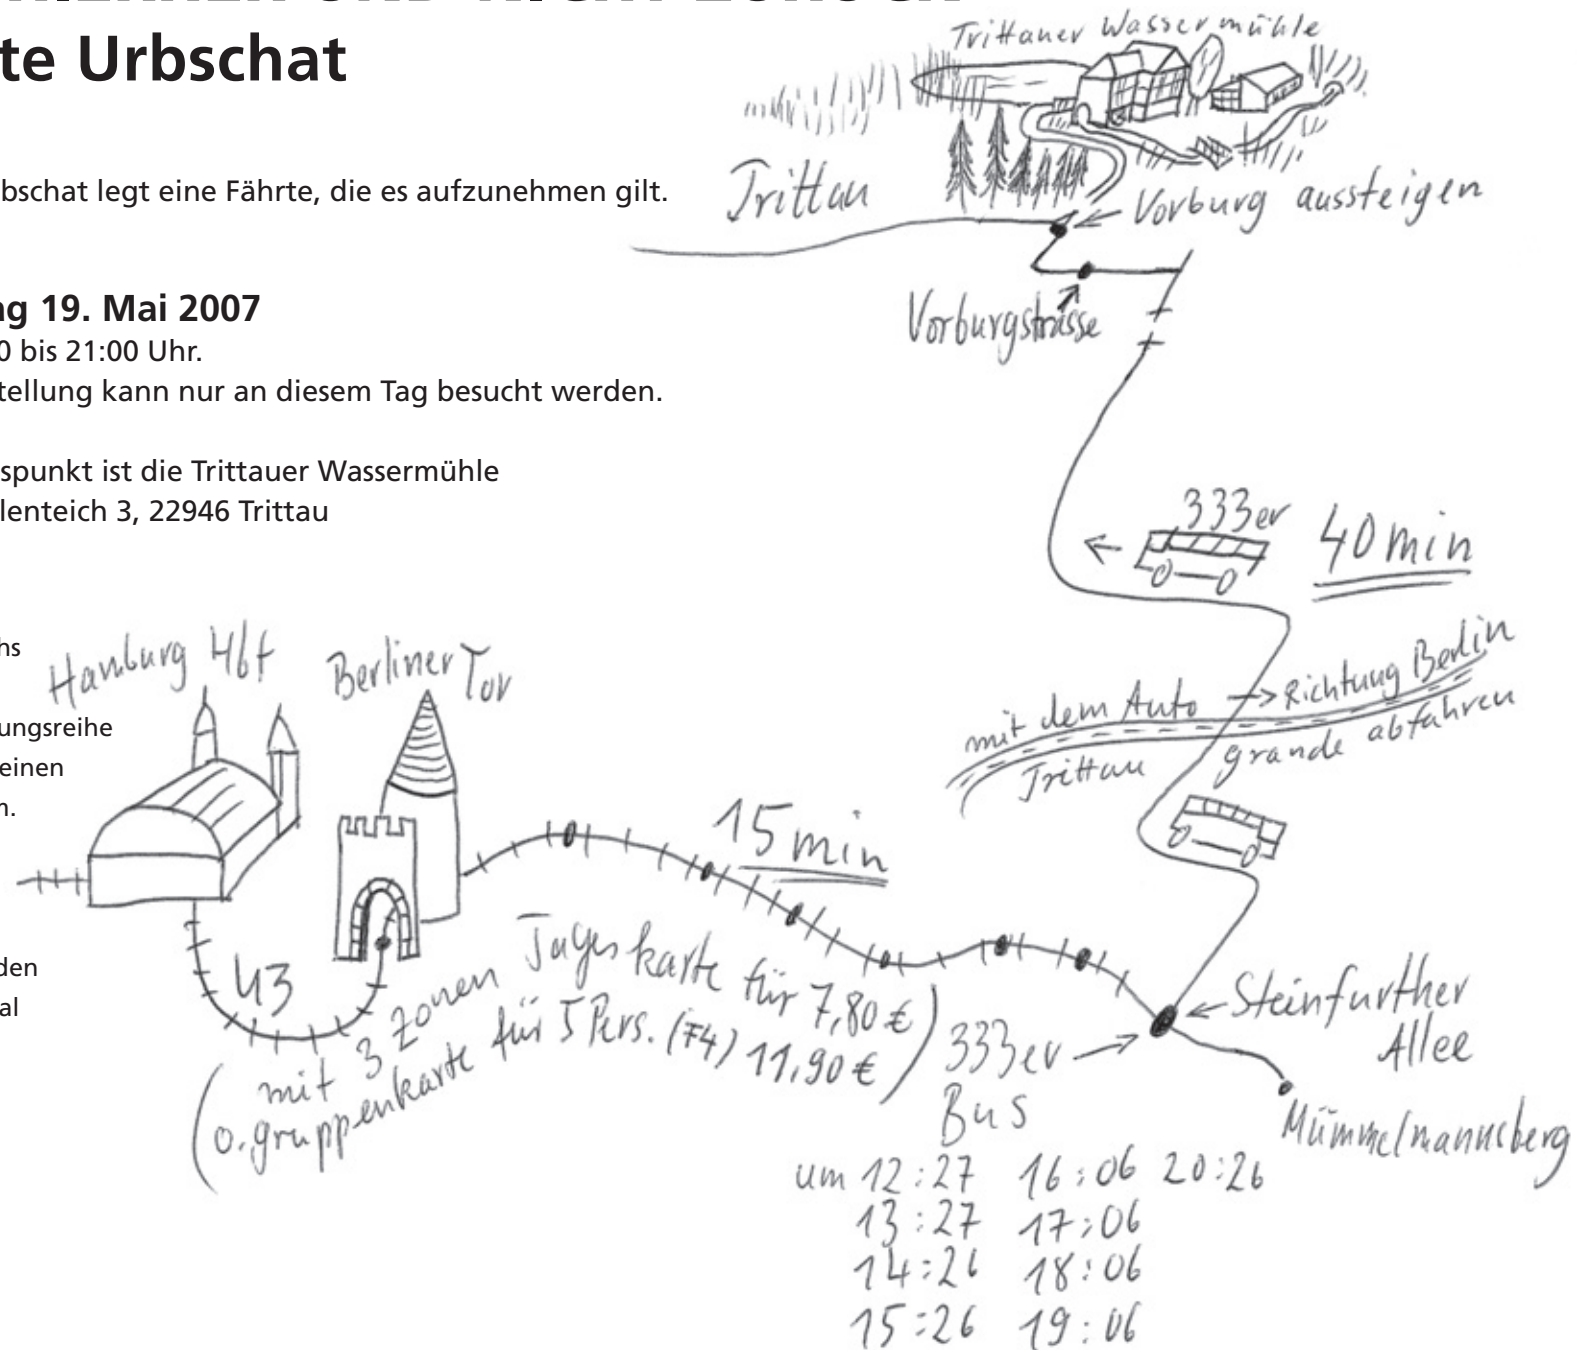 te Urbschat
bschat legt eine Fährte, die es aufzunehmen gilt.
ng 19. Mai 2007
0 bis 21:00 Uhr.
tellung kann nur an diesem Tag besucht werden.
spunkt ist die Trittauer Wassermühle
lenteich 3, 22946 Trittau
hs
ungsreihe
einen
n.
den
al
Trittauer Wassermühle
Trittau
Vorburg aussteigen
Vorburgstrasse
333er
40 min
mit dem Auto → Richtung Berlin
Trittau grande abfahren
Hamburg Hbf
Berliner Tor
15 min
U3
(mit 3 Zonen Tageskarte für 7,80 €
o. gruppenkarte für 5 Pers. (F4) 11,90 €)
333er
Bus
Steinfurther
Allee
Mümmelmannsberg
um 12:27 16:06 20:26
13:27 17:06
14:26 18:06
15:26 19:06